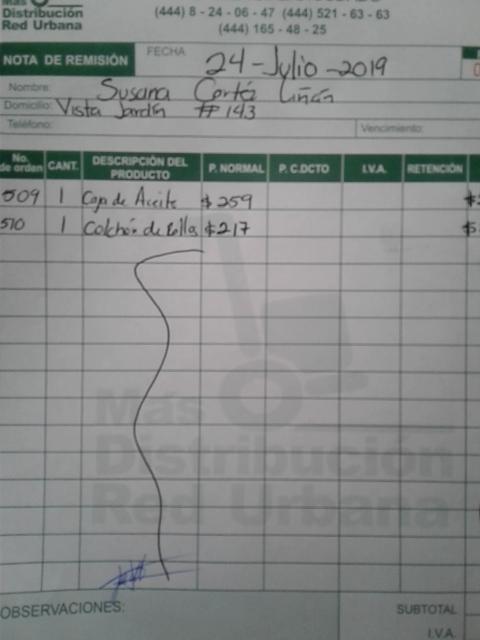 Más
Distribución
Red Urbana
(444) 8 - 24 - 06 - 47 (444) 521 - 63 - 63
(444) 165 - 48 - 25
NOTA DE REMISIÓN
FECHA
24-Julio-2019
Nombre: Susana Cortéz Liñán
Domicilio: Vista Jardín # 143
Teléfono:
Vencimiento:
No. de orden CANT. DESCRIPCIÓN DEL PRODUCTO P. NORMAL P. C.DCTO I.V.A. RETENCIÓN
509 1 Caja de Aceite $259
510 1 Colchón de Rollos $217
Más
Distribución
Red Urbana
OBSERVACIONES:
SUBTOTAL
I.V.A.